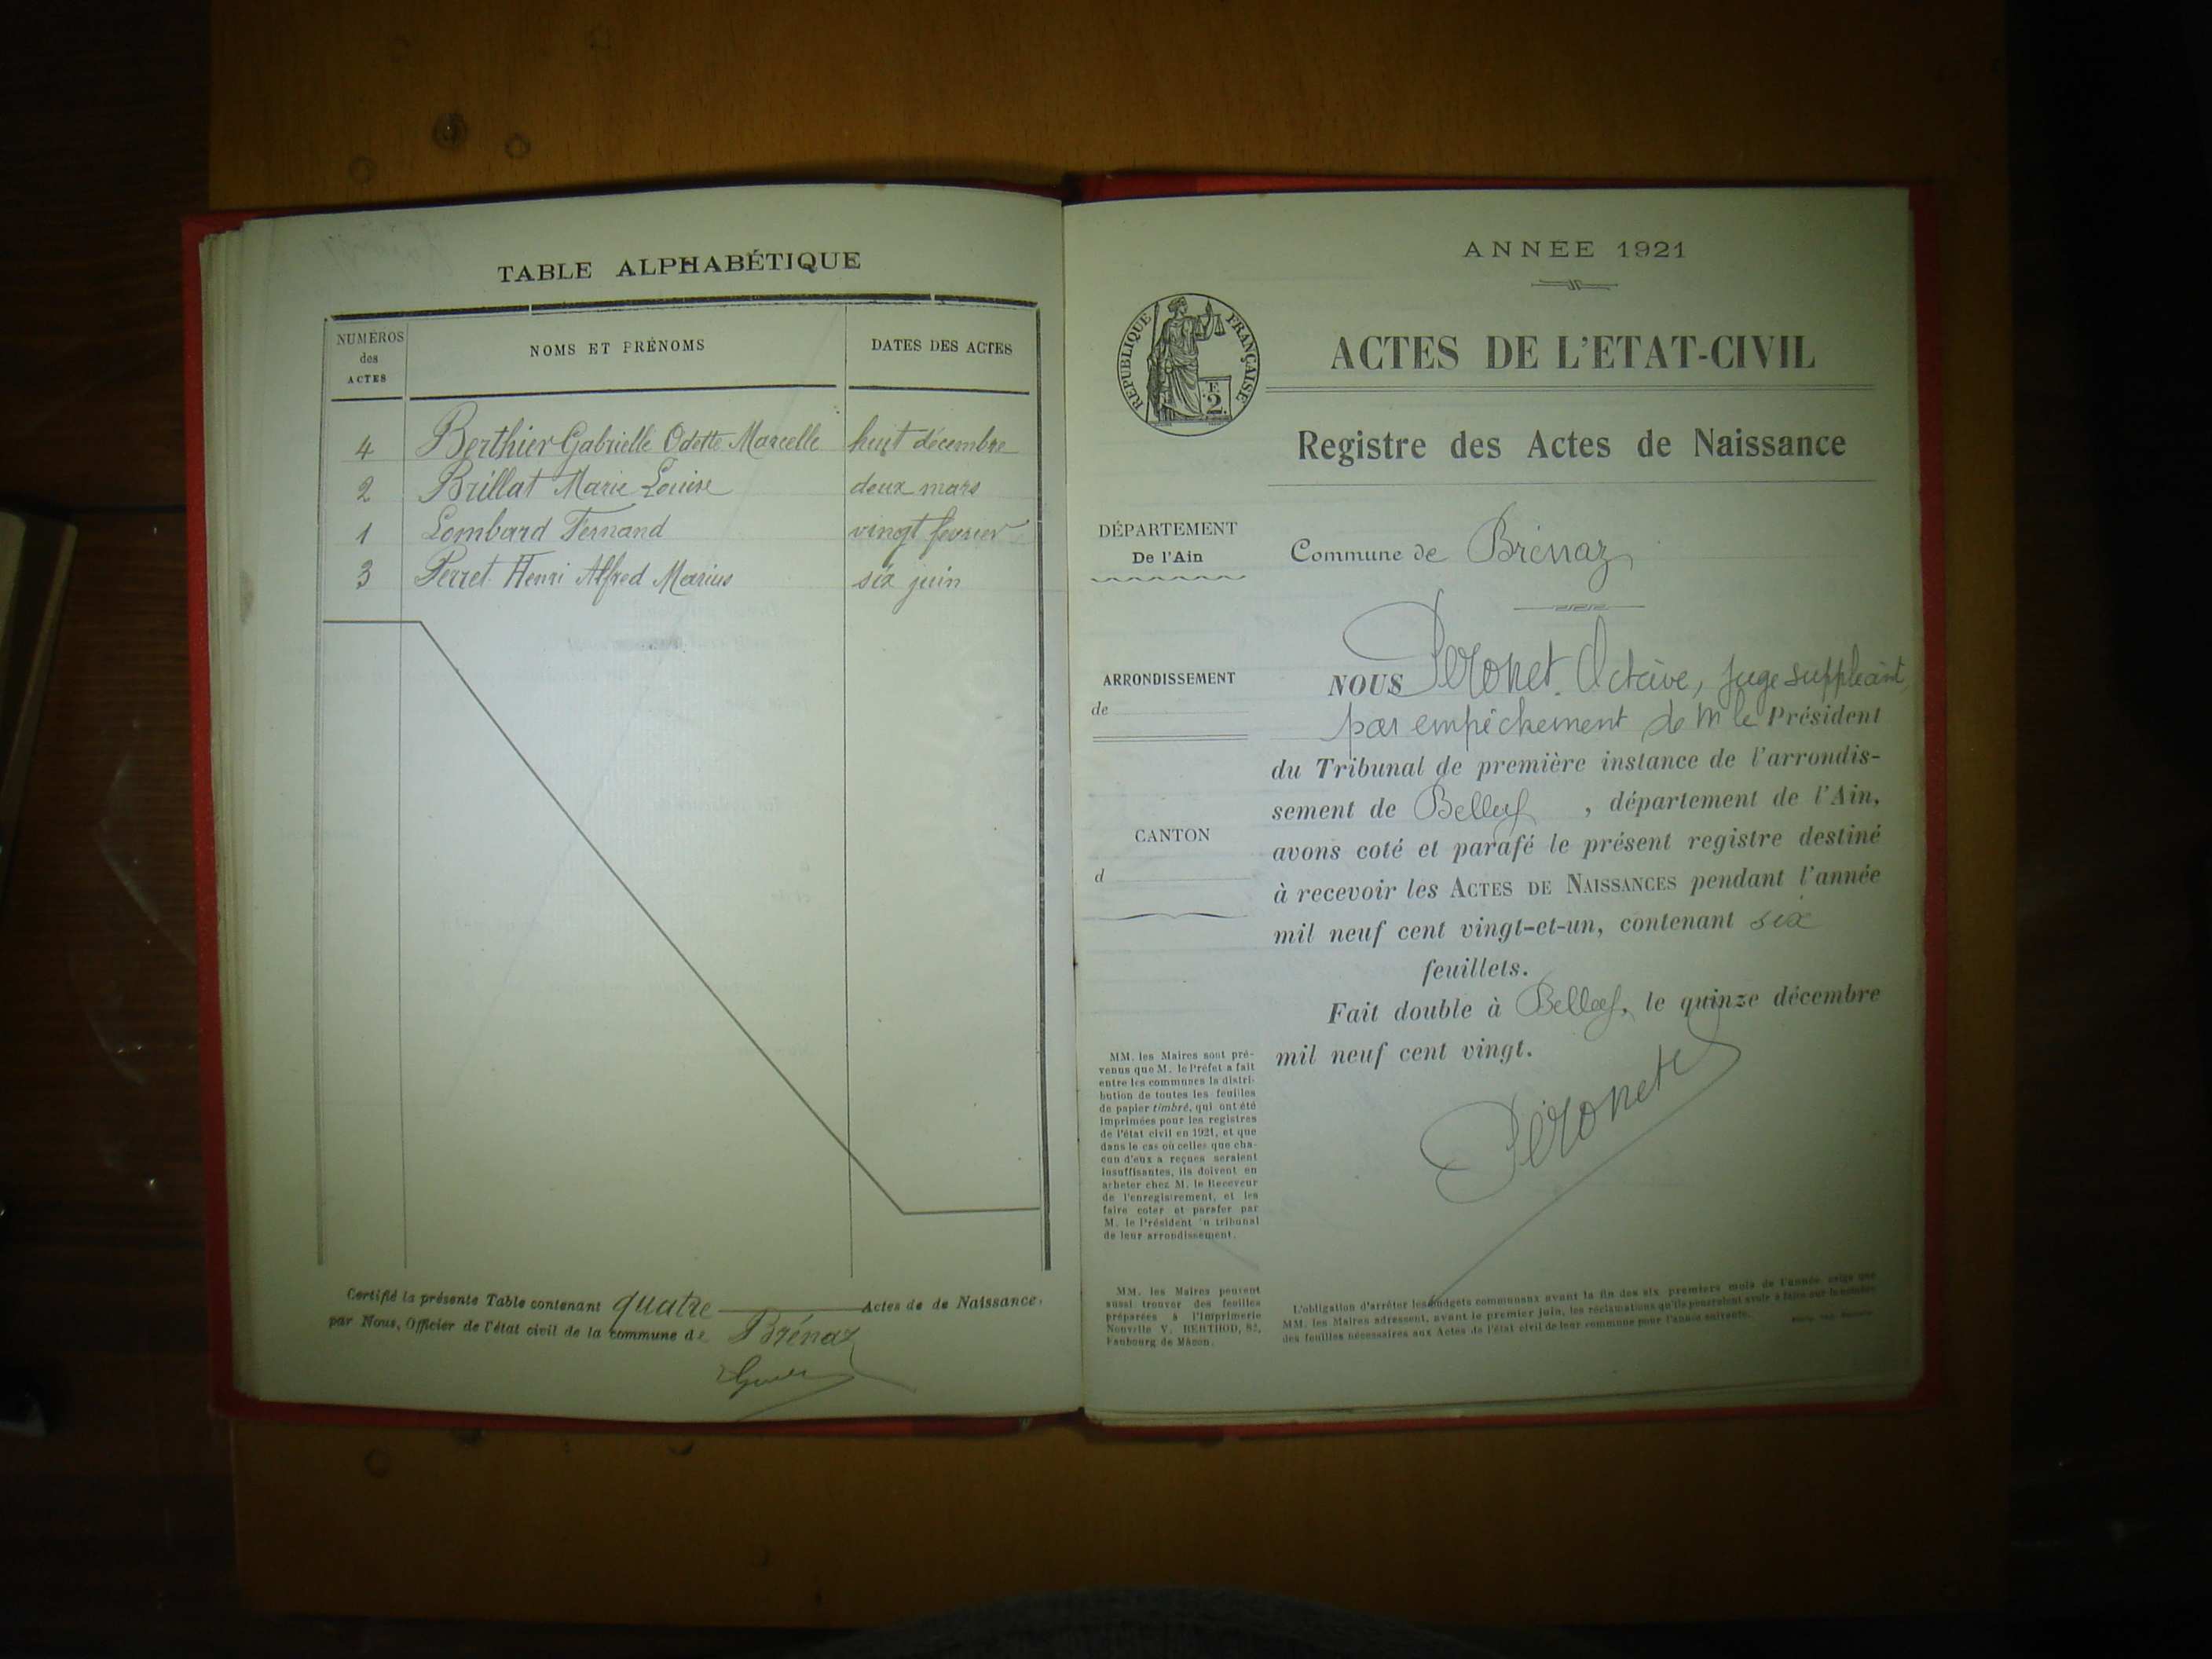 TABLE ALPHABÉTIQUE
NUMÉROS
des
ACTES
NOMS ET PRÉNOMS
DATES DES ACTES
4 Berthier Gabrielle Odette Marcelle huit décembre
2 Brillat Marie Louise deux mars
1 Lombard Fernand vingt fevrier
3 Perret Henri Alfred Marius six juin
Certifié la présente Table contenant quatre Actes de de Naissance,
par Nous, Officier de l'état civil de la commune de Brénaz
ANNÉE 1921
RÉPUBLIQUE FRANÇAISE
F.
2
ACTES DE L'ETAT-CIVIL
Registre des Actes de Naissance
DÉPARTEMENT
De l'Ain
Commune de Brénaz
ARRONDISSEMENT
de
CANTON
d
NOUS Péronet Octave, juge suppléant
par empêchement de M le Président
du Tribunal de première instance de l'arrondis-
sement de Belley, département de l'Ain,
avons coté et parafé le présent registre destiné
à recevoir les ACTES DE NAISSANCES pendant l'année
mil neuf cent vingt-et-un, contenant six
feuillets.
Fait double à Belley, le quinze décembre
mil neuf cent vingt.
Péronet
MM. les Maires sont pré-
venus que M. le Préfet a fait
entre les communes la distri-
bution de toutes les feuilles
de papier timbré, qui ont été
imprimées pour les registres
de l'état civil en 1921, et que
dans le cas où celles que cha-
cun d'eux a reçues seraient
insuffisantes, ils doivent en
acheter chez M. le Receveur
de l'enregistrement, et les
faire coter et parafer par
M. le Président du tribunal
de leur arrondissement.
MM. les Maires peuvent
aussi trouver des feuilles
préparées à l'Imprimerie
Nouvelle V. BERTHOD, 82,
Faubourg de Mâcon.
L'obligation d'arrêter les budgets communaux avant la fin des six premiers mois de l'année, exige que
MM. les Maires adressent, avant le premier juin, les réclamations qu'ils pourraient avoir à faire sur le nombre
des feuilles nécessaires aux Actes de l'état civil de leur commune pour l'année suivante.